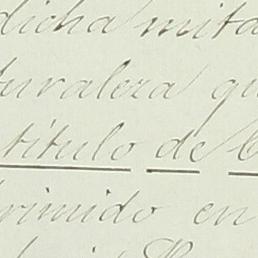 dicha mita
turaleza qu
título de C
rimido en